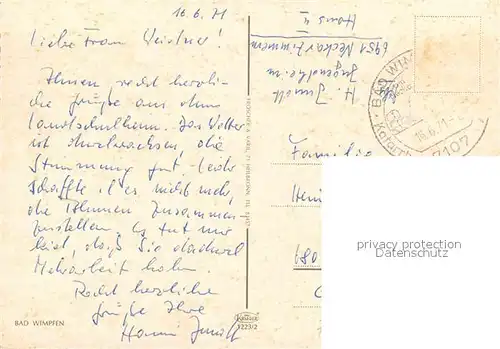 16.6.71
Liebe Frau
Ihnen recht herzli-
che Grüße aus dem
Landschulheim. Das Wetter
ist durchwachsen, die
Stimmung gut. Leider
schaffte ich es nicht mehr,
die Blumen zusammen-
zustellen. Es tut mir
leid, daß Sie dadurch
Mehrarbeit haben.
Recht herzliche
Grüße Ihre
BAD WIMPFEN
Krüger
1223/2
H.
Jugendheim
6951 Neckarzimmern
Haus 4
BAD WIM
16.6.71
7107
Familie
Hein
680
privacy protection
Datenschutz